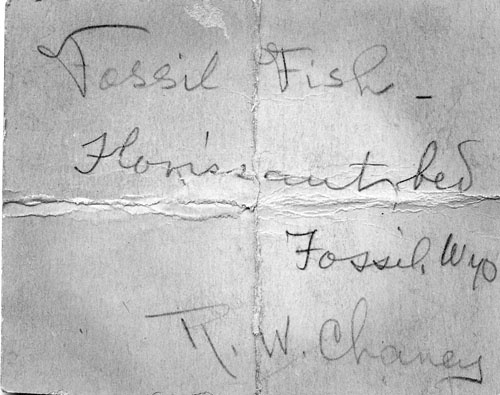 Fossil Fish -
Florissant bed
Fossil, Wyo
R. W. Chaney